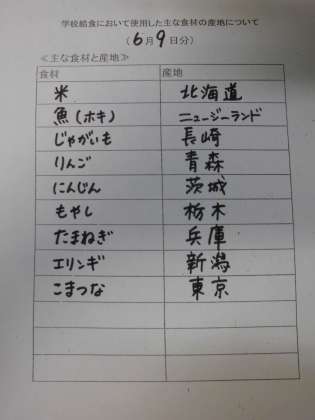 学校給食において使用した主な食材の産地について
(6月9日分)
≪主な食材と産地≫
食材 産地
米 北海道
魚(ホキ) ニュージーランド
じゃがいも 長崎
りんご 青森
にんじん 茨城
もやし 栃木
たまねぎ 兵庫
エリンギ 新潟
こまつな 東京